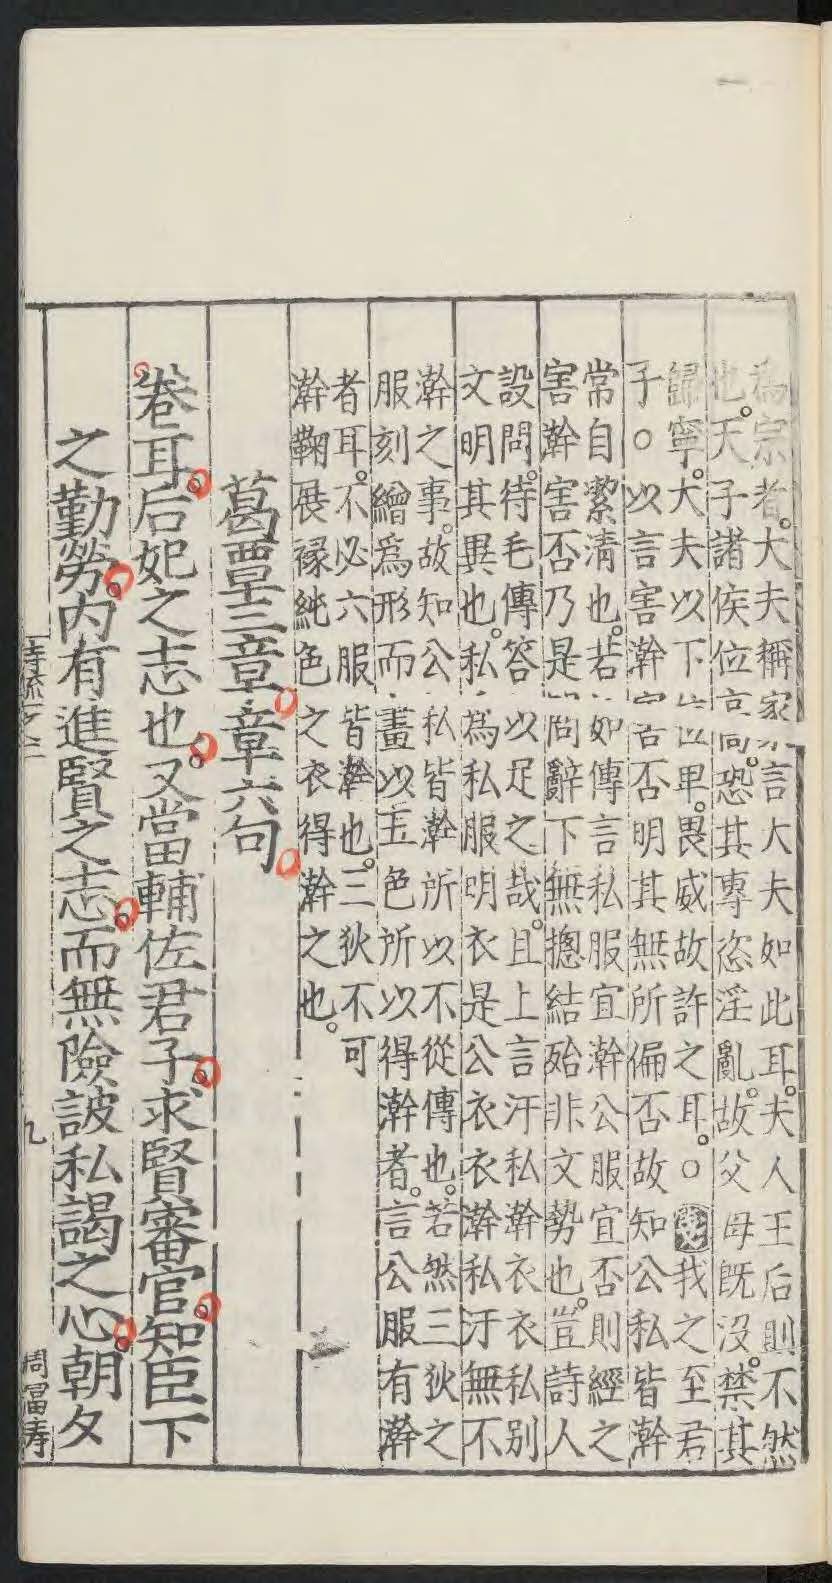 為宗者。大夫稱家。言大夫如此耳。夫人王后則不然
也。天子諸侯位高恐其專恣淫亂。故父母既沒。禁其
歸寧。大夫以下位卑。畏威故許之耳。○我之至君
子。○以言害澣害否明其無所偏否故知公私皆澣
常自絜清也。若如傳言私服宜澣公服宜否則經之
害澣害否乃是問辭下無摠結殆非文勢也。豈詩人
設問。待毛傳答以足之哉。且上言汙私澣衣衣私別
文明其異也。私為私服明衣是公衣衣澣私汙無不
澣之事。故知公私皆澣所以不從傳也。若然三狄之
服刻繒為形而畫以五色所以得澣者。言公服有澣
者耳。不必六服皆澣也。三狄不可
澣鞠展褖純色之衣得澣之也。
葛覃三章章六句。
卷耳。后妃之志也。又當輔佐君子。求賢審官。知臣下
之勤勞。內有進賢之志。而無險詖私謁之心。朝夕
詩疏一之二
九
周冨壽